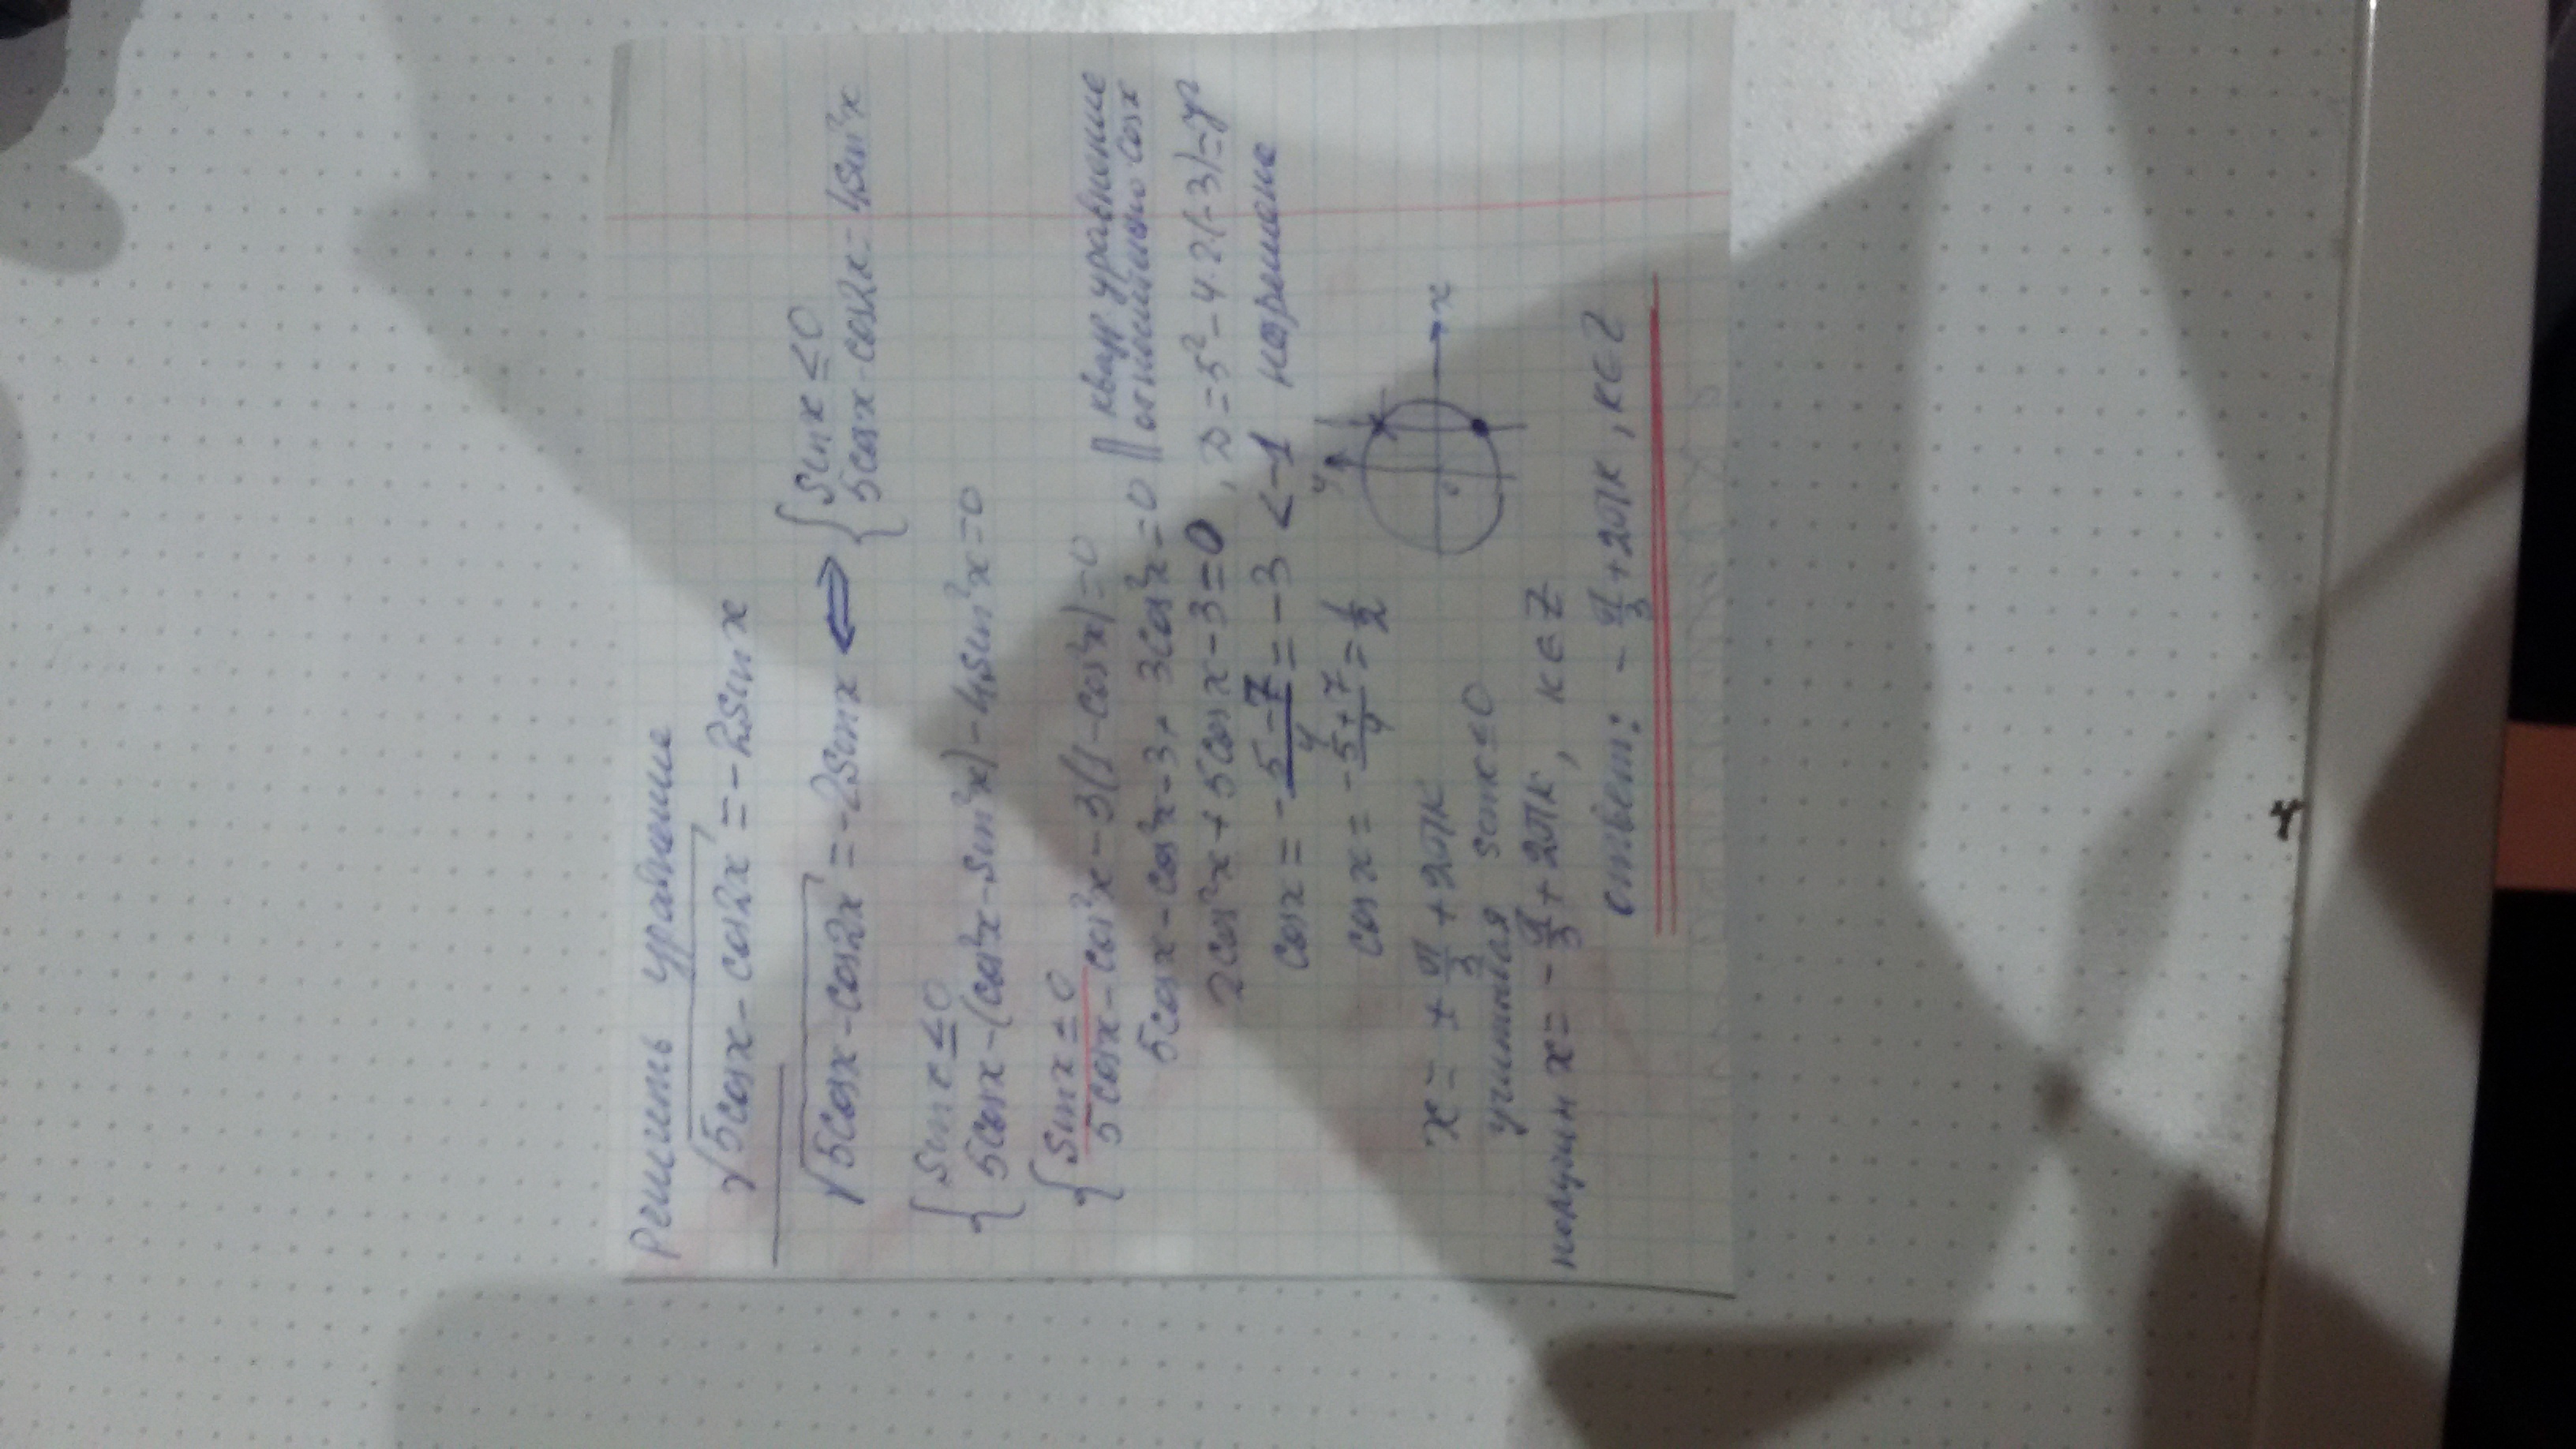 Решить уравнение
√5cosx - cos2x = -2sinx
√5cosx - cos2x = -2sinx ⇔ { sinx ≤ 0
5cosx - cos2x = 4sin²x
{ sinx ≤ 0
5cosx - (cos²x - sin²x) - 4sin²x = 0
{ sinx ≤ 0
5cosx - cos²x - 3(1 - cos²x) = 0
5cosx - cos²x - 3 + 3cos²x = 0 || квадр уравнение
относительно cosx
2cos²x + 5cosx - 3 = 0, D = 5² - 4·2(-3) =
cosx = -5-7/4 = -3 < -1
cosx = -5+7/4 = 1/2
y
x
0
x = ± π/3 + 2πk
учитывая sinx ≤ 0
получим x = - π/3 + 2πk, k ∈ Z
ответ: - π/3 + 2πk, k ∈ Z